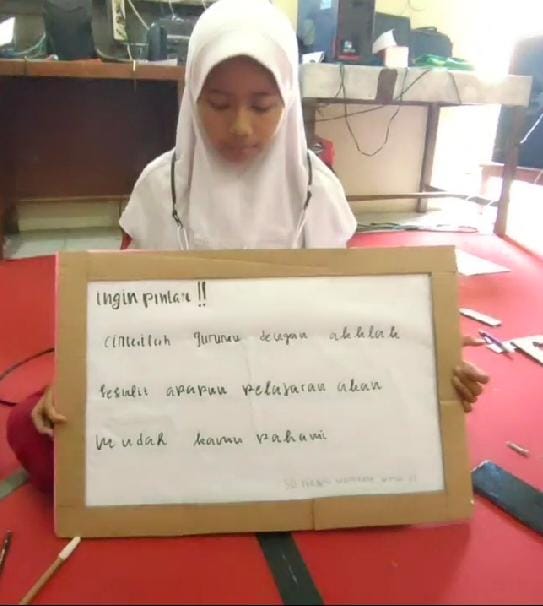 Ingin pintar !!
Cintailah gurumu dengan akhlak
sesulit apapun pelajaran akan
mudah kamu pahami
SD